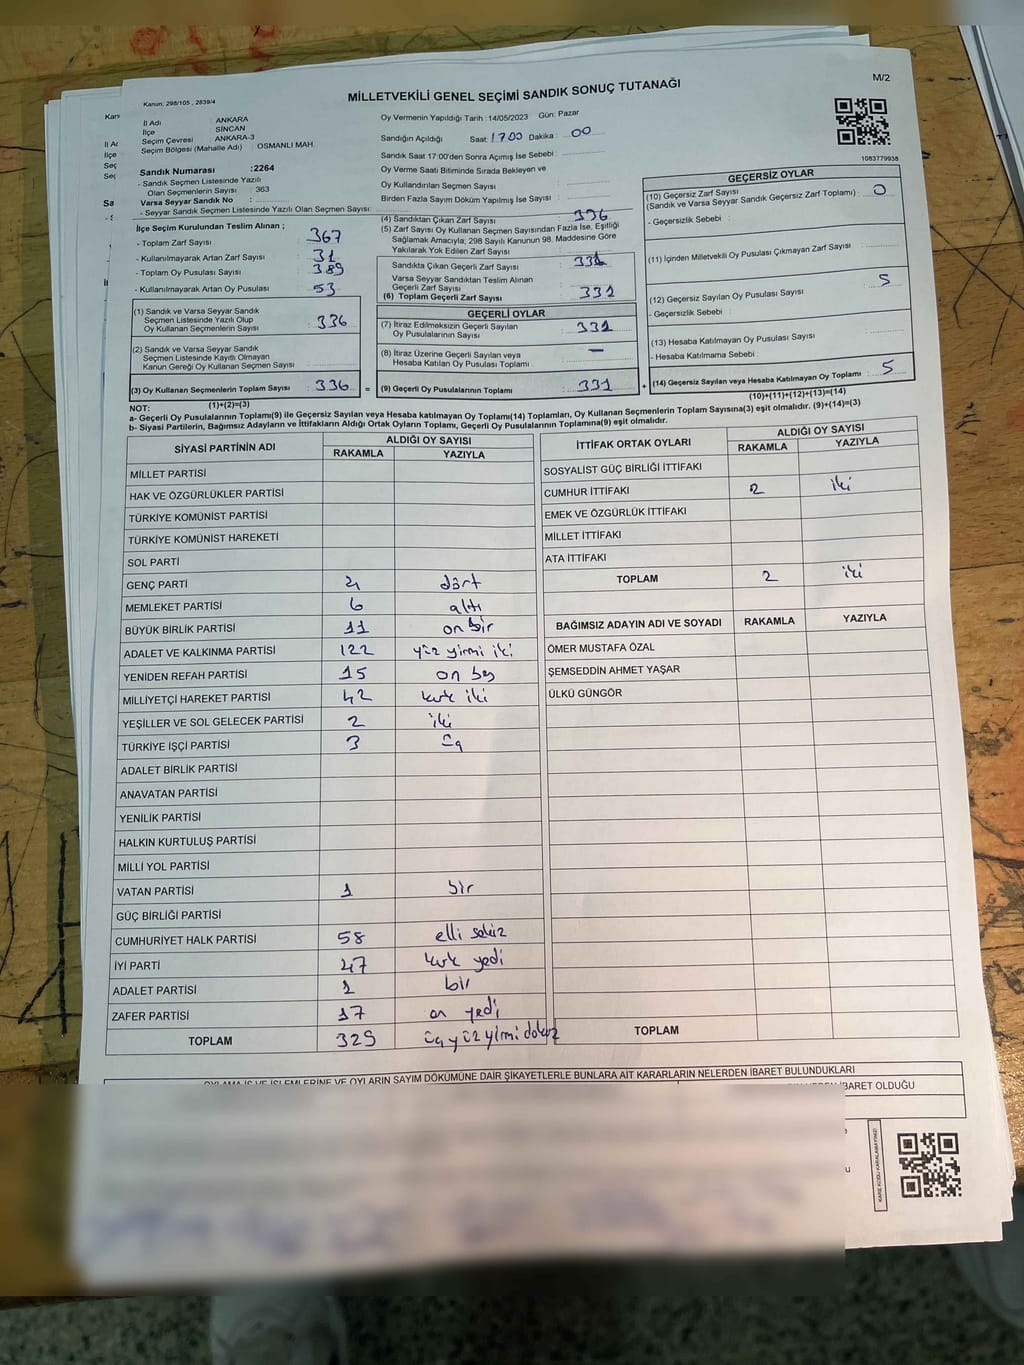 Kanun, 298/105 , 2839/4
MİLLETVEKİLİ GENEL SEÇİMİ SANDIK SONUÇ TUTANAĞI
M/2
İl Adı ANKARA
İlçe SİNCAN
Seçim Çevresi ANKARA-3
Seçim Bölgesi (Mahalle Adı) : OSMANLI MAH.
Oy Vermenin Yapıldığı Tarih : 14/05/2023 Gün: Pazar
Sandığın Açıldığı Saat: 17:00 Dakika : 00
Sandık Saat 17:00'den Sonra Açımış İse Sebebi :
Oy Verme Saati Bitiminde Sırada Bekleyen ve
Oy Kullandırılan Seçmen Sayısı :
Birden Fazla Sayım Döküm Yapılmış İse Sayısı :
1083779938
Sandık Numarası :2264
- Sandık Seçmen Listesinde Yazılı
Olan Seçmenlerin Sayısı : 363
Varsa Seyyar Sandık No :
- Seyyar Sandık Seçmen Listesinde Yazılı Olan Seçmen Sayısı:
İlçe Seçim Kurulundan Teslim Alınan ;
- Toplam Zarf Sayısı : 367
- Kullanılmayarak Artan Zarf Sayısı : 31
- Toplam Oy Pusulası Sayısı : 389
- Kullanılmayarak Artan Oy Pusulası : 53
(1) Sandık ve Varsa Seyyar Sandık
Seçmen Listesinde Yazılı Olup
Oy Kullanan Seçmenlerin Sayısı : 336
(2) Sandık ve Varsa Seyyar Sandık
Seçmen Listesinde Kayıtlı Olmayan
Kanun Gereği Oy Kullanan Seçmen Sayısı :
(3) Oy Kullanan Seçmenlerin Toplam Sayısı : 336 =
(1)+(2)=(3)
(4) Sandıktan Çıkan Zarf Sayısı : 336
(5) Zarf Sayısı Oy Kullanan Seçmen Sayısından Fazla İse, Eşitliği
Sağlamak Amacıyla, 298 Sayılı Kanunun 98. Maddesine Göre
Yakılarak Yok Edilen Zarf Sayısı :
Sandıkta Çıkan Geçerli Zarf Sayısı : 331
Varsa Seyyar Sandıktan Teslim Alınan
Geçerli Zarf Sayısı :
(6) Toplam Geçerli Zarf Sayısı : 331
GEÇERLİ OYLAR
(7) İtiraz Edilmeksizin Geçerli Sayılan
Oy Pusulalarının Sayısı : 331
(8) İtiraz Üzerine Geçerli Sayılan veya
Hesaba Katılan Oy Pusulası Toplamı : —
(9) Geçerli Oy Pusulalarının Toplamı : 331 +
GEÇERSİZ OYLAR
(10) Geçersiz Zarf Sayısı
(Sandık ve Varsa Seyyar Sandık Geçersiz Zarf Toplamı) : 0
- Geçersizlik Sebebi :
(11) İçinden Milletvekili Oy Pusulası Çıkmayan Zarf Sayısı :
(12) Geçersiz Sayılan Oy Pusulası Sayısı : 5
- Geçersizlik Sebebi :
(13) Hesaba Katılmayan Oy Pusulası Sayısı :
- Hesaba Katılmama Sebebi :
(14) Geçersiz Sayılan veya Hesaba Katılmayan Oy Toplamı : 5
(10)+(11)+(12)+(13)=(14)
NOT:
a- Geçerli Oy Pusulalarının Toplamı(9) ile Geçersiz Sayılan veya Hesaba katılmayan Oy Toplamı(14) Toplamları, Oy Kullanan Seçmenlerin Toplam Sayısına(3) eşit olmalıdır. (9)+(14)=(3)
b- Siyasi Partilerin, Bağımsız Adayların ve İttifakların Aldığı Ortak Oyların Toplamı, Geçerli Oy Pusulalarının Toplamına(9) eşit olmalıdır.
SİYASİ PARTİNİN ADI ALDIĞI OY SAYISI
RAKAMLA YAZIYLA
MİLLET PARTİSİ
HAK VE ÖZGÜRLÜKLER PARTİSİ
TÜRKİYE KOMÜNİST PARTİSİ
TÜRKİYE KOMÜNİST HAREKETİ
SOL PARTİ
GENÇ PARTİ 4 dört
MEMLEKET PARTİSİ 6 altı
BÜYÜK BİRLİK PARTİSİ 11 on bir
ADALET VE KALKINMA PARTİSİ 122 yüz yirmi iki
YENİDEN REFAH PARTİSİ 15 on beş
MİLLİYETÇİ HAREKET PARTİSİ 42 kırk iki
YEŞİLLER VE SOL GELECEK PARTİSİ 2 iki
TÜRKİYE İŞÇİ PARTİSİ 3 üç
ADALET BİRLİK PARTİSİ
ANAVATAN PARTİSİ
YENİLİK PARTİSİ
HALKIN KURTULUŞ PARTİSİ
MİLLİ YOL PARTİSİ
VATAN PARTİSİ 1 bir
GÜÇ BİRLİĞİ PARTİSİ
CUMHURİYET HALK PARTİSİ 58 elli sekiz
İYİ PARTİ 47 kırk yedi
ADALET PARTİSİ 1 bir
ZAFER PARTİSİ 17 on yedi
TOPLAM 329 üç yüz yirmi dokuz
İTTİFAK ORTAK OYLARI ALDIĞI OY SAYISI
RAKAMLA YAZIYLA
SOSYALİST GÜÇ BİRLİĞİ İTTİFAKI
CUMHUR İTTİFAKI 2 iki
EMEK VE ÖZGÜRLÜK İTTİFAKI
MİLLET İTTİFAKI
ATA İTTİFAKI
TOPLAM 2 iki
BAĞIMSIZ ADAYIN ADI VE SOYADI RAKAMLA YAZIYLA
ÖMER MUSTAFA ÖZAL
ŞEMSEDDİN AHMET YAŞAR
ÜLKÜ GÜNGÖR
TOPLAM
OYLAMA İŞ VE İŞLEMLERİNE VE OYLARIN SAYIM DÖKÜMÜNE DAİR ŞİKAYETLERLE BUNLARA AİT KARARLARIN NELERDEN İBARET BULUNDUKLARI
İBARET OLDUĞU
KARE KODU KARALAMAYINIZ!